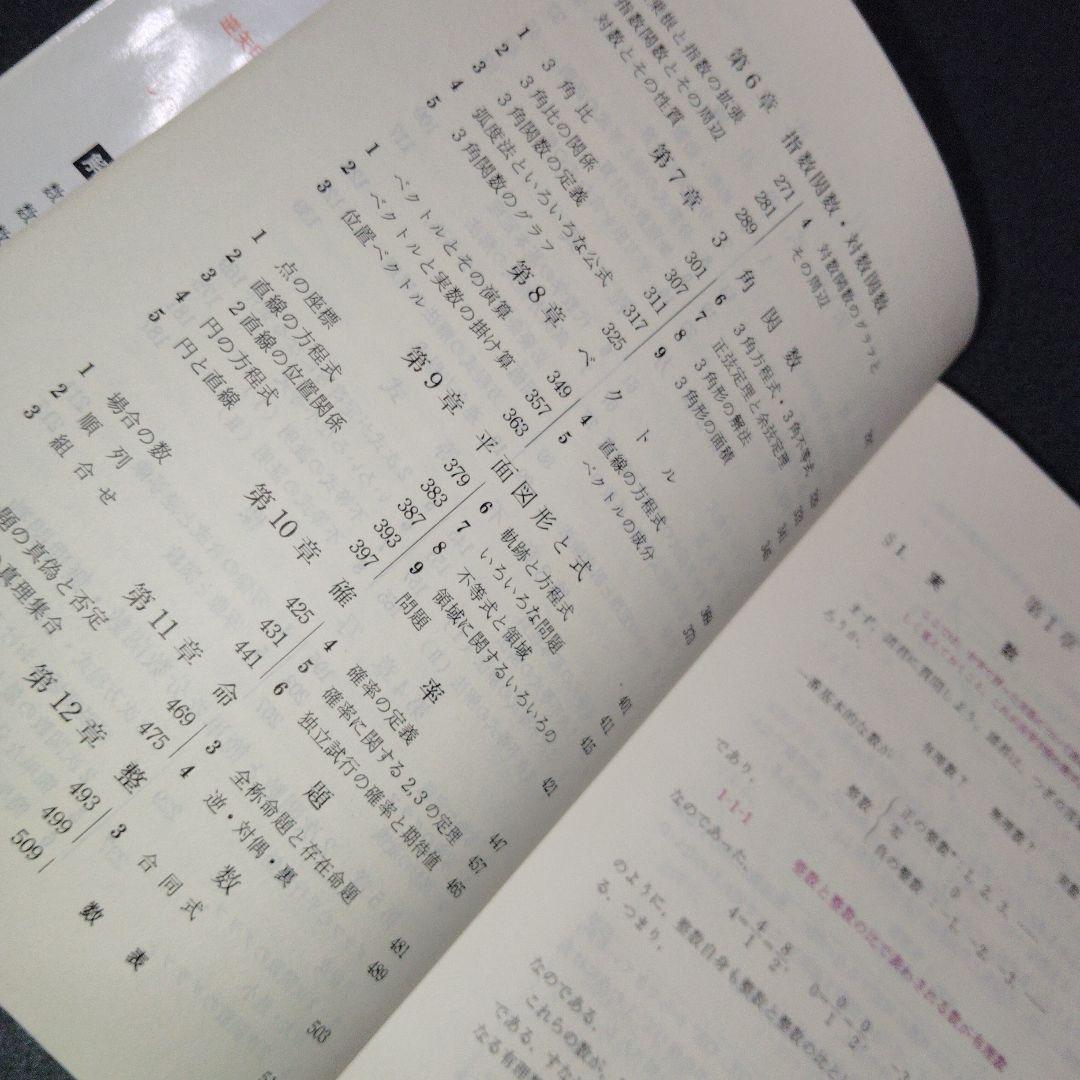 第6章 指数関数・対数関数
累根と指数の拡張 271
指数関数とその周辺 281
対数とその性質 289
4 対数関数のグラフと
その周辺
第7章 3角関数
1 3角比 301
2 3角比の関係 307
3 3角関数の定義 311
4 弧度法といろいろな公式 317
5 3角関数のグラフ 325
6 3角方程式・3角不等式
7 正弦定理と余弦定理
8 3角形の解法
9 3角形の面積
第8章 ベクトル
1 ベクトルとその演算 349
2 ベクトルと実数の掛け算 357
3 位置ベクトル 363
4 直線の方程式
5 ベクトルの成分
第9章 平面図形と式
1 点の座標 379
2 直線の方程式 383
3 2直線の位置関係 387
4 円の方程式 393
5 円と直線 397
6 軌跡と方程式 401
7 いろいろな問題 411
8 不等式と領域 415
9 領域に関するいろいろの
問題 421
第10章 確率
1 場合の数 425
2 順列 431
3 組合せ 441
4 確率の定義 447
5 確率に関する2,3の定理 457
6 独立試行の確率と期待値 465
第11章 命題
題の真偽と否定 469
真理集合 475
3 全称命題と存在命題 481
4 逆・対偶・裏 489
第12章 整数
493
499
3 合同式 503
509
数表
第1章
§1. 実数
まず, 諸君に質問しよう. 諸君は, つぎの
ろうか.
有理数? 無理数?
一番基本的な数が
整数 正の整数 1, 2, 3,
零 0
負の整数 -1, -2, -3,
であり,
1・1・1
整数と整数の比で表わされる数が有理数
なのであった.
4=4/1=8/2, 0=0/1=0/2,
のように, 整数自身も整数と整数の比と
る. つまり,
なのである.
これらの数が,
である. すな
なる有理